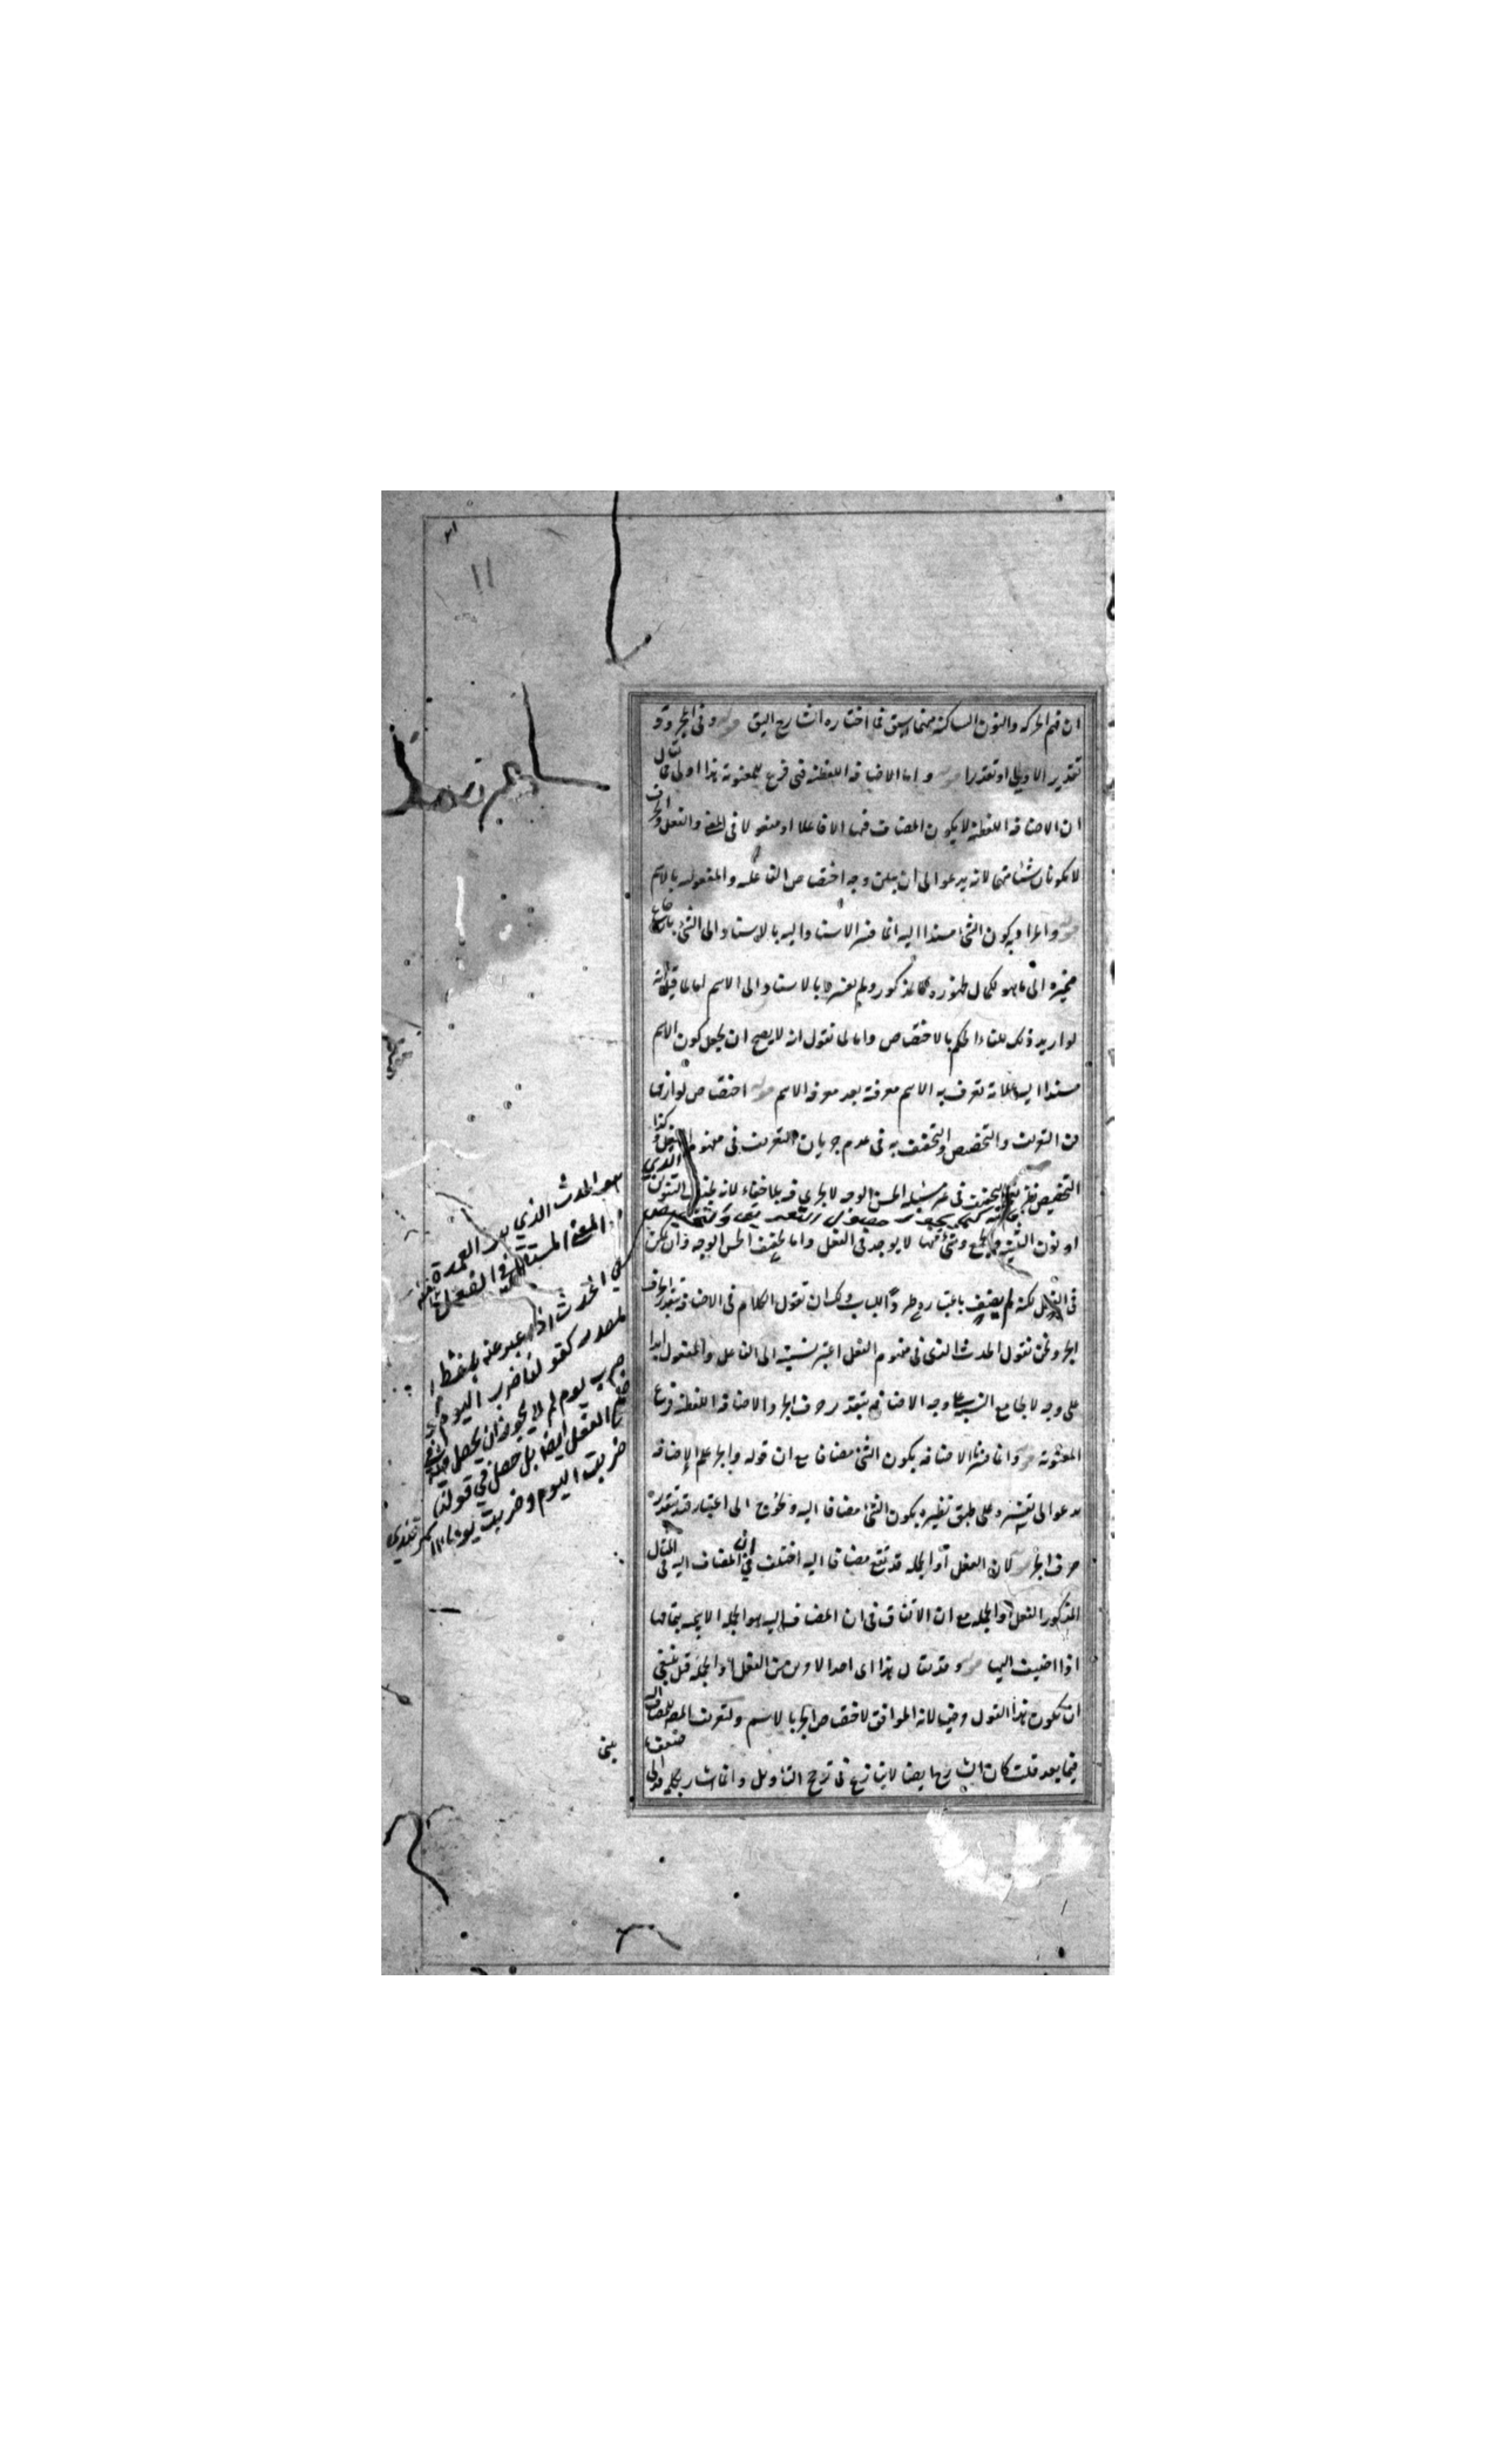 ان فتم الحركة والنون الساكنة منها سبق فما اختاره الشارح اليق قوله وفي الجر وقو
تقدير الاولى او تعقدرا قوله واما الاضافة اللفظية فهي فرع للمعنوية هذا اولى مما يقال
ان الاضافة اللفظية لا يكون المضاف فيها الا فاعلا او مفعولا في المعنى والفعل والحرف
لا يكونان شيئا منهما لانه يدعو الى ان يبين وجه اختصاص الفاعلية والمفعولية بالاسم
قوله والمراد به كون الشيء مسندا اليه انما فسر الاسناد اليه بالاسناد الى الشيء بارجاع
ضميره الى ما هو لكمال ظهوره كالمذكور ولم يفسره بالاسناد الى الاسم لما قيل انه
لو اريد ذلك للغا الحكم بالاختصاص وانما لما نقول انه لا يصح ان يجعل كون الاسم
مسندا اليه علامة تعرف به الاسم معرفته بعد معرفة الاسم قوله اختصاص لوازمها
من التعريف والتخصيص والتخفيف به في عدم جريان التعريف في مفهوم الفعل وكذا
التخصيص نظر التخفيف في مسئلة الحسن الوجه لا يجري فيه بلا خفاء لانه بحذف التنوين
او نون التثنية والجمع وشيء منها لا يوجد في الفعل واما تخفيف الحسن الوجه فان لم يكن
في الفعل لكنه لم يضف باعتباره وطردا للباب ولك ان تقول الكلام في الاضافة بتقدير الحرف
الجر ونحن نقول الحدث الذي في مفهوم الفعل اعتبر نسبته الى الفاعل والمفعول ابدا
على وجه لا يجامع النسبة على وجه الاضافة بتقدير حرف الجر والاضافة اللفظية فرع
المعنوية قوله وانما فسرنا الاضافة بكون الشيء مضافا مع ان قوله والجر علم الاضافة
يدعو الى تفسيره على طبق نظيره بكون الشيء مضافا اليه ويحوج الى اعتبار قيد بتقدير
حرف الجر قوله لان الفعل او الجملة قد تقع مضافا اليه اختلف في ان المضاف اليه في المثال
المذكور الفعل او الجملة مع ان الاتفاق في ان المضاف اليه هو الجملة الاسمية بتمامها
اذا اضيف اليها قوله وقد يقال هذا اي احد الامرين من الفعل او الجملة قيل ينبغي
ان يكون هذا القول مرضيا لانه الموافق لاختصاص الجر بالاسم ولتعريف المص للمضاف اليه
فيما بعد قلت كان الشارح ايضا لا ينازع في ترجيح التأويل وانما اشار بكلمة قد الى ضعف
يبني
هو الحدث الذي هو العمدة
المعنى المستقل في الفعل منه
في الحدث اذا عبر عنه بلفظ
المصدر كقولنا ضرب اليوم
ضرب يوم لم لا يجوز ان يحصل
الفعل ايضا بل حصل في قولنا
ضربت اليوم وضربت يوما
سمرقندي
١١